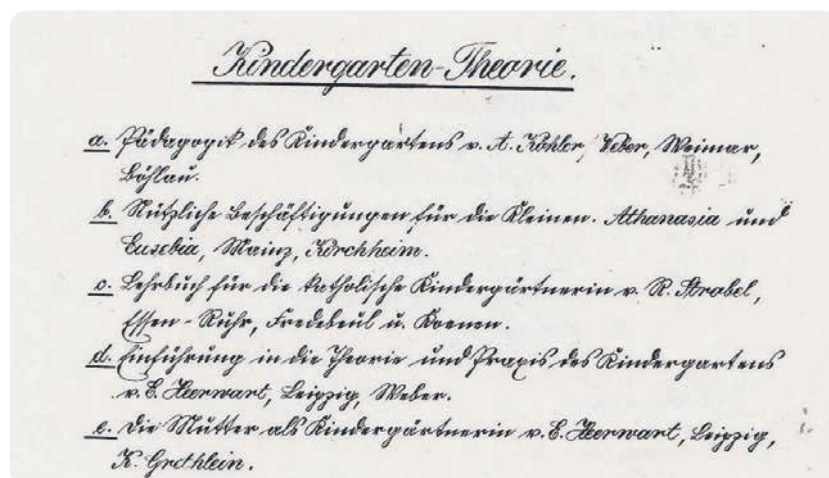 Kindergarten-Theorie.
a. Pädagogik des Kindergartens v. A. Köhler, Weber, Weimar,
Böhlau.
b. Nützliche Beschäftigungen für die Kleinen. Athanasia und
Eusebia, Mainz, Kirchheim.
c. Lehrbuch für die katholische Kindergärtnerin v. R. Strobel,
Essen-Ruhr, Fredebeul u. Koenen.
d. Einführung in die Theorie und Praxis des Kindergartens
v. E. Heerwart, Leipzig, Weber.
e. Die Mutter als Kindergärtnerin v. E. Heerwart, Leipzig,
K. Grethlein.